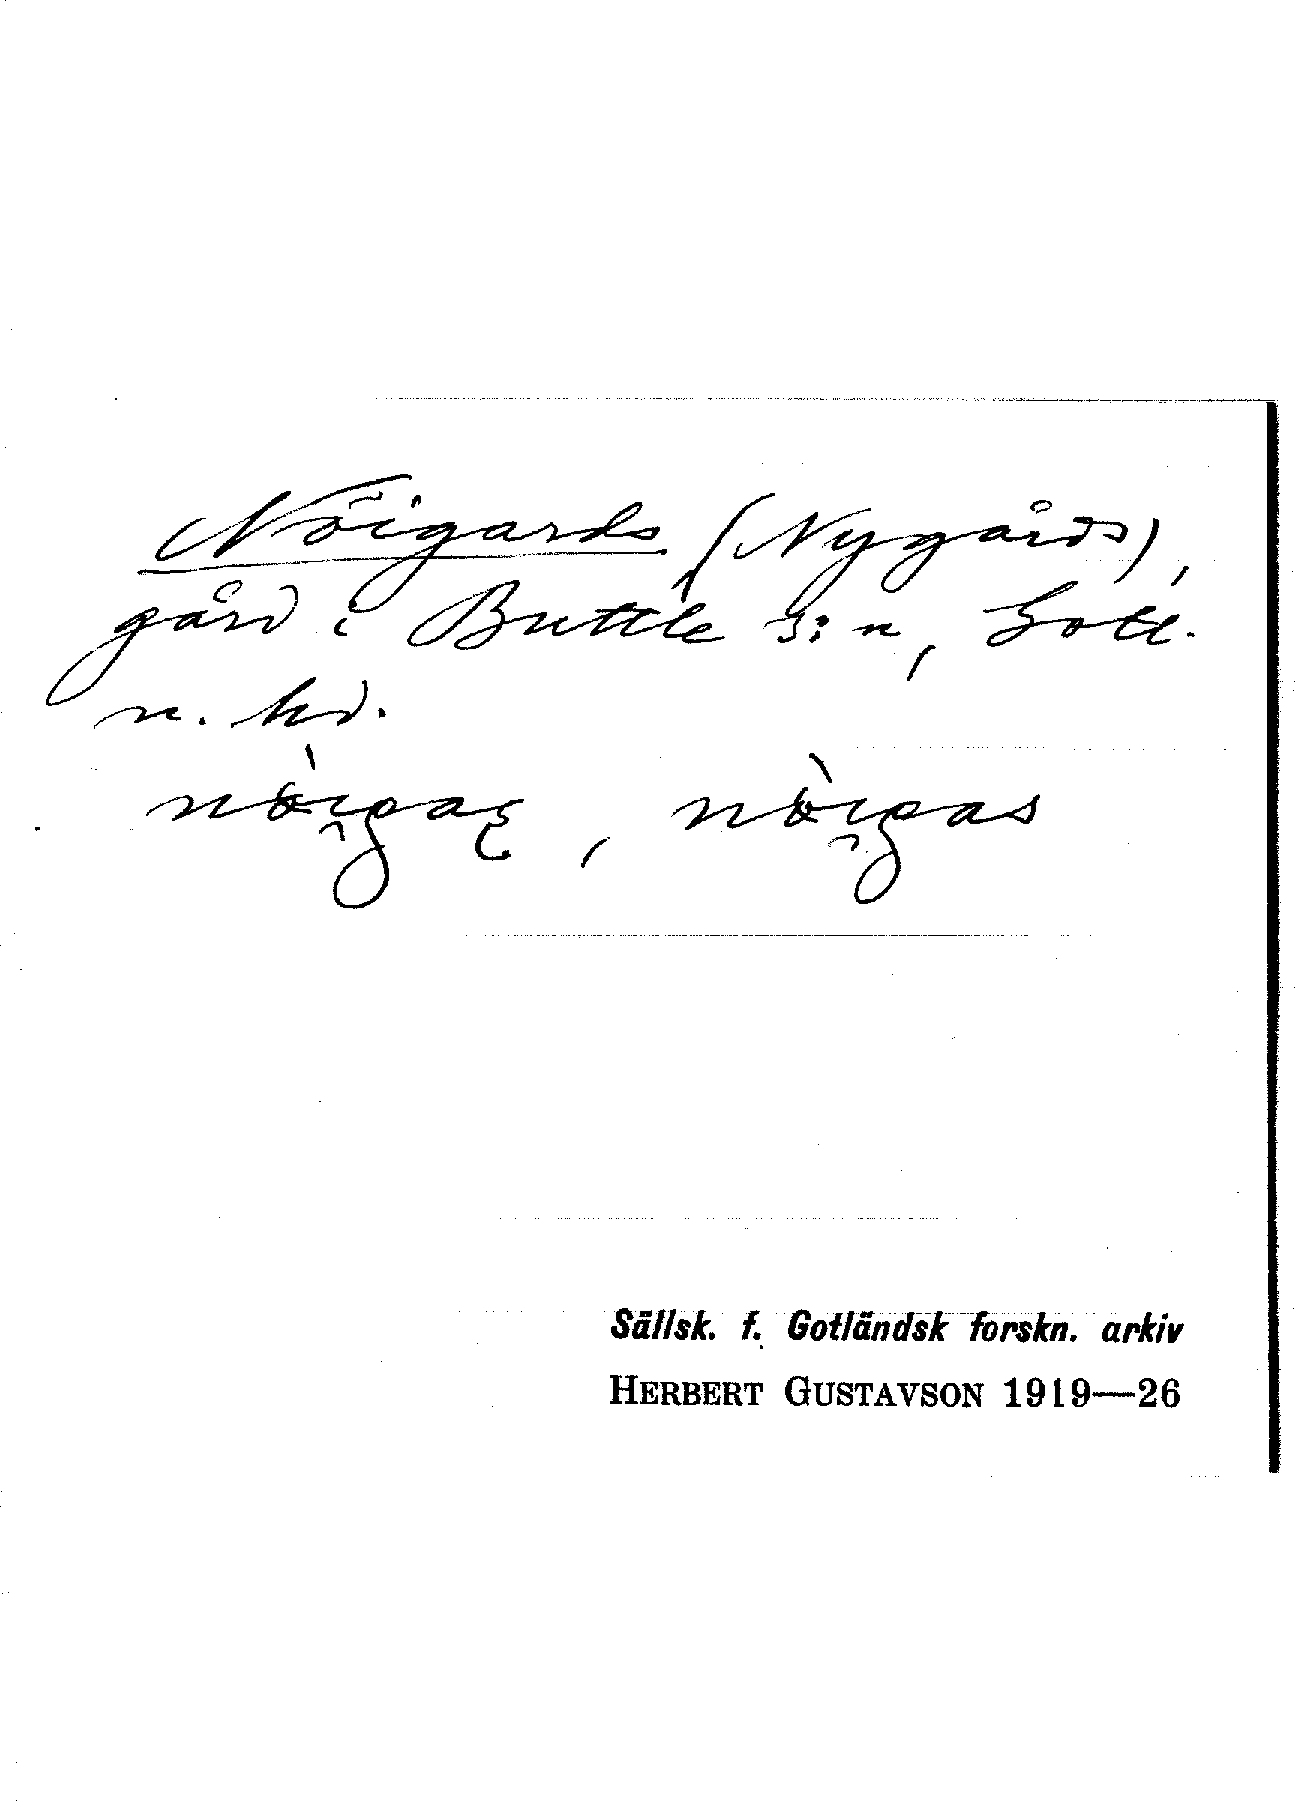 Nöigards (Nygårds),
gård i Buttle s:n, Gotl.
n. hd.
nòi̯gaʂ, nòi̯gas
Sällsk. f. Gotländsk forskn. arkiv
HERBERT GUSTAVSON 1919—26